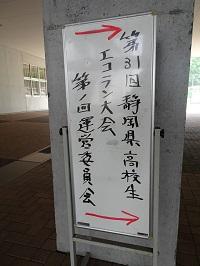 第31回静岡県高校生
エコラン大会
第1回運営委員会